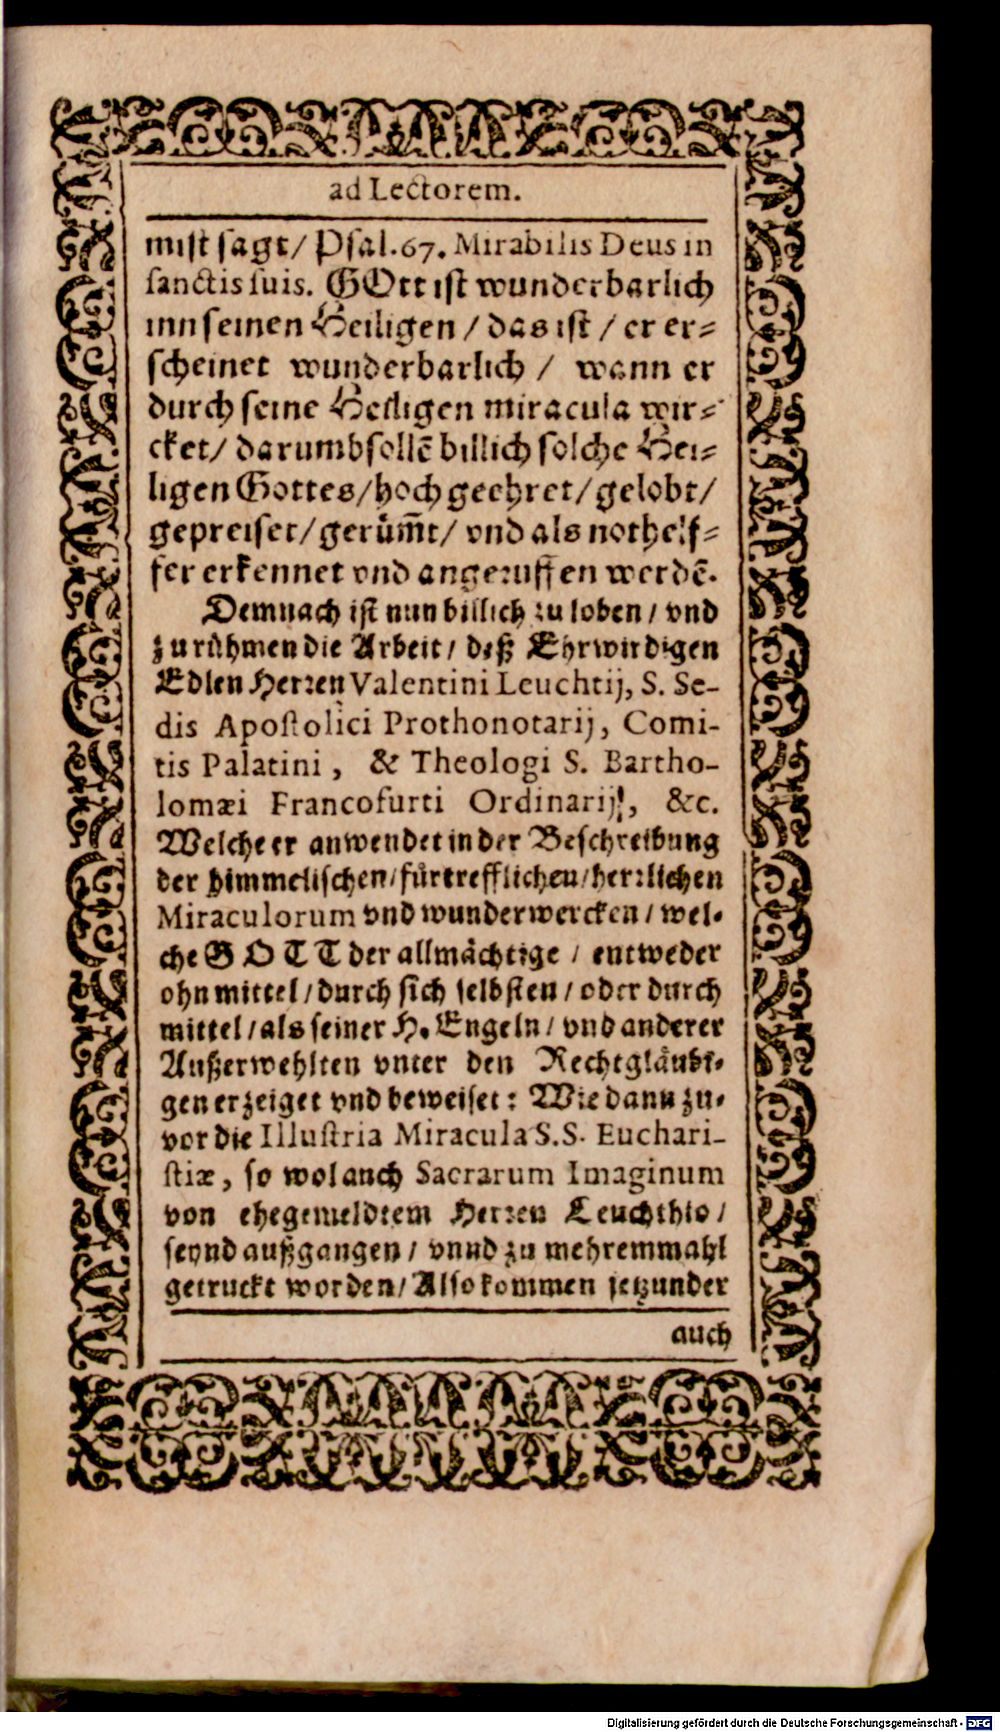 ad Lectorem.
mist sagt/ Psal.67. Mirabilis Deus in
sanctis suis. GOtt ist wunderbarlich
inn seinen Heiligen / das ist / er er-
scheinet wunderbarlich / wann er
durch seine Heiligen miracula wir-
cket/ darumb sollē billich solche Hei-
ligen Gottes/hoch geehret/gelobt/
gepreiset/gerüm̄t/ vnd als nothelf-
fer erkennet vnd angeruffen werdē.
Demnach ist nun billich zu loben / vnd
zu rühmen die Arbeit / deß Ehrwirdigen
Edlen Herren Valentini Leuchtij, S. Se-
dis Apostolici Prothonotarij, Comi-
tis Palatini, & Theologi S. Bartho-
lomæi Francofurti Ordinarij, &c.
Welche er anwendet in der Beschreibung
der himmelischen/fürtrefflichen/herrlichen
Miraculorum vnd wunderwercken / wel-
che GOTT der allmächtige / entweder
ohn mittel/durch sich selbsten/oder durch
mittel/als seiner H. Engeln/ vnd anderer
Außerwehlten vnter den Rechtgläubi-
gen erzeiget vnd beweiset: Wie dann zu-
vor die Illustria Miracula S.S. Euchari-
stiæ, so wol auch Sacrarum Imaginum
von ehegemeldtem Herren Leuchthio/
seynd außgangen / vnnd zu mehremmahl
getruckt worden/Also kommen jetzunder
auch
Digitalisierung gefördert durch die Deutsche Forschungsgemeinschaft - DFG